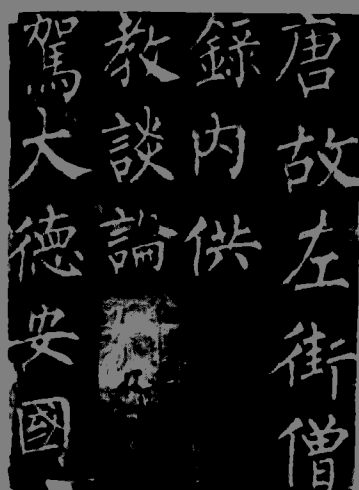 唐故左街僧
錄内供
教談論
駕大德安國